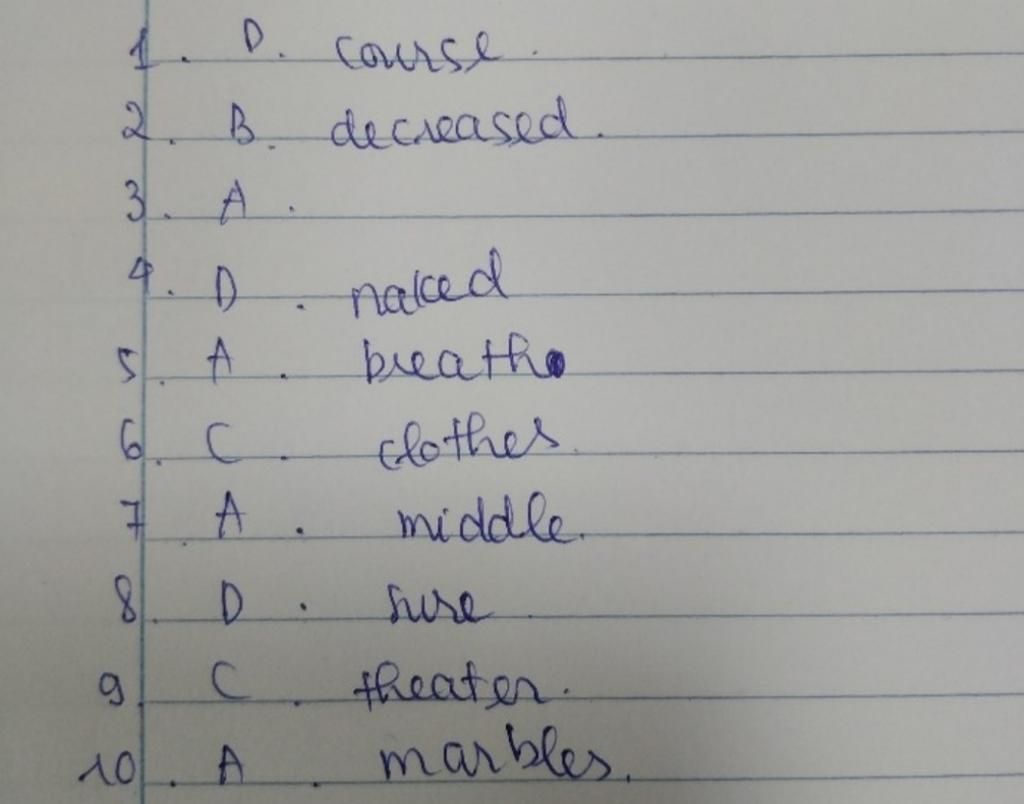 1. D. course.
2. B. decreased.
3. A.
4. D. naked
5. A. breath
6. C. clothes.
7. A. middle.
8. D. sure
9. C. theater.
10. A. marbles.